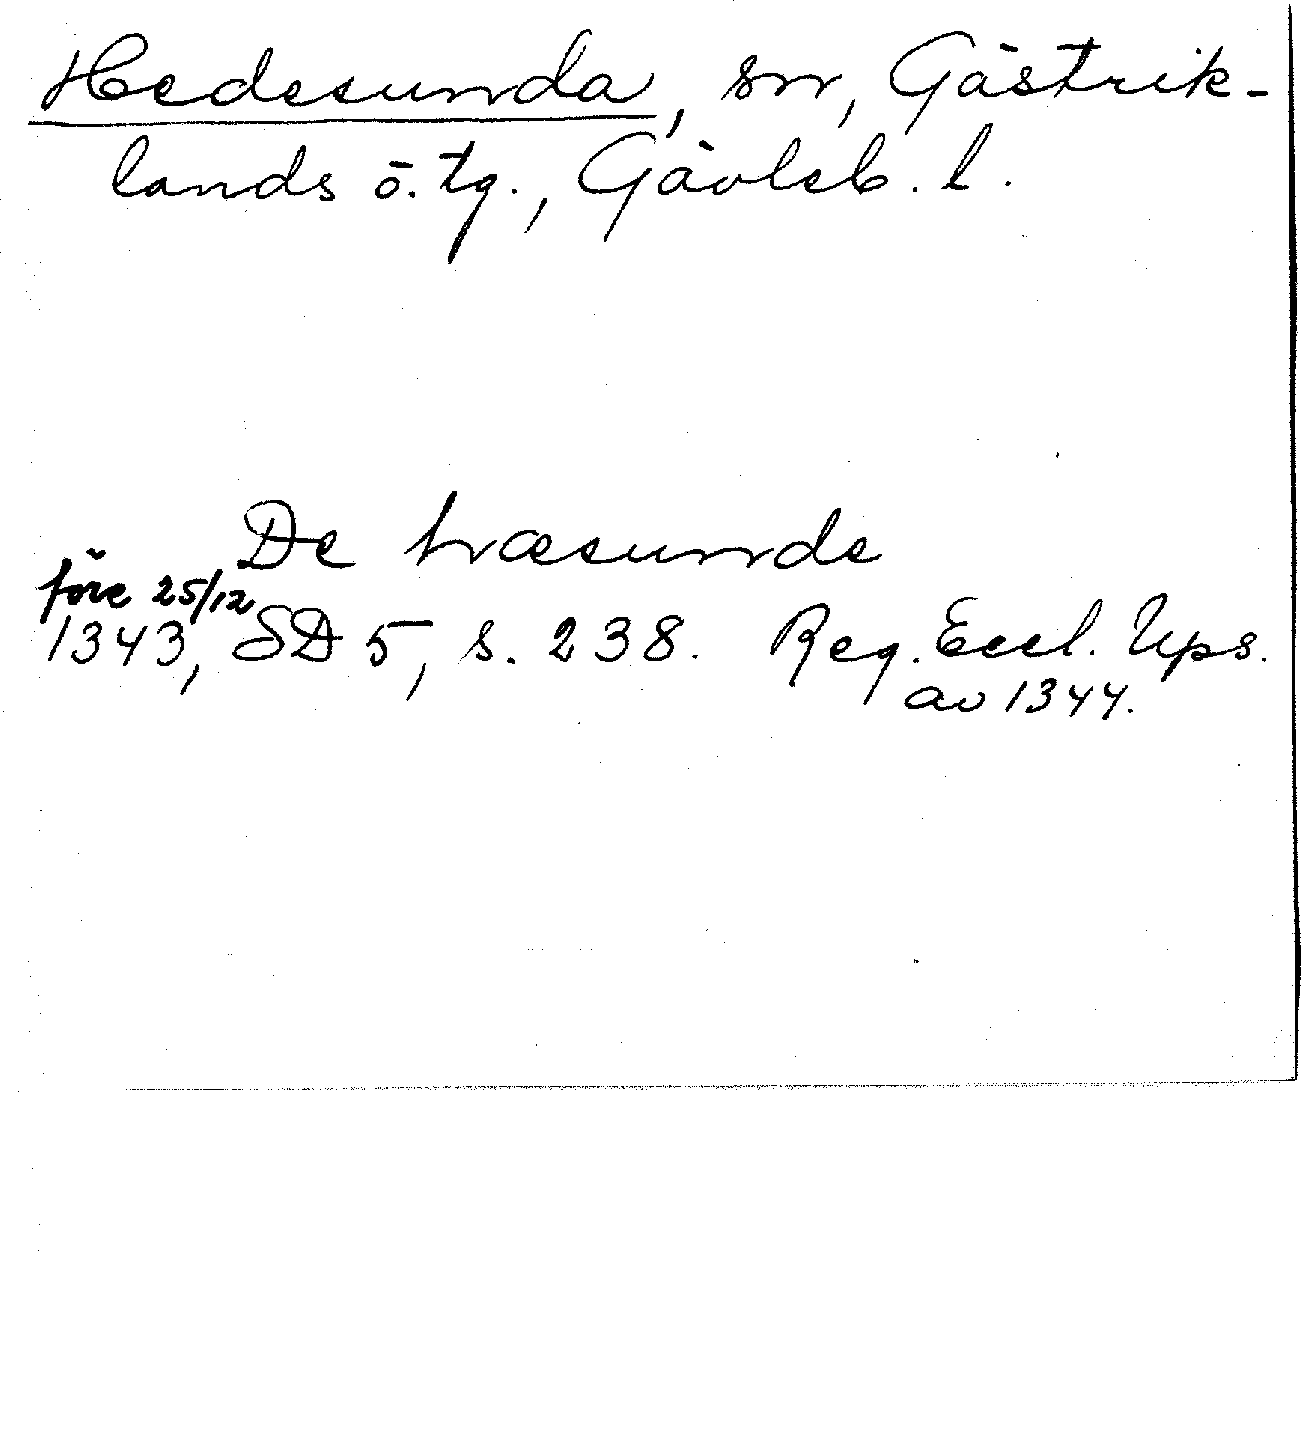 Hedesunda, sn, Gästrik-
lands ö. tg., Gävleb. l.
De hræsunde
före 25/12
1343, SD 5, s. 238. Reg. Eccl. Ups.
av 1344.